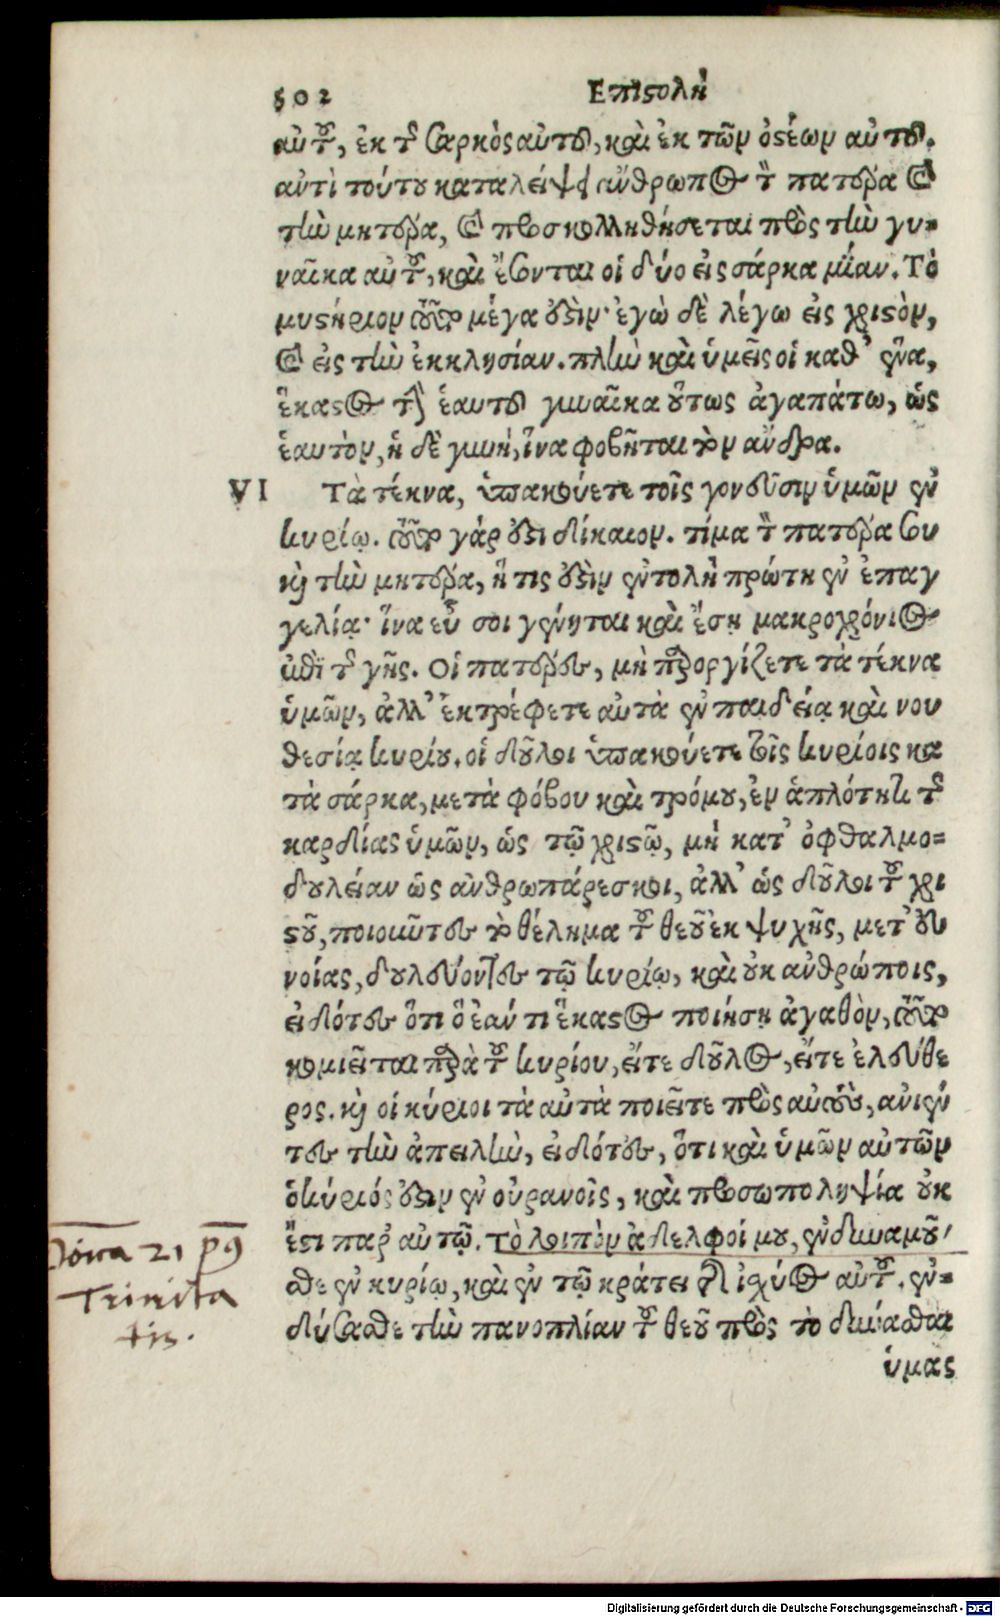 502 Επιστολὴ
αὐτοῦ, ἐκ τῆς σαρκὸς αὐτοῦ, καὶ ἐκ τῶν ὀστέων αὐτοῦ.
αὐτὶ τούτου καταλείψει ἄνθρωπος τὸν πατέρα καὶ
τὴν μητέρα, καὶ προσκολληθήσεται πρὸς τὴν γυ=
ναῖκα αὐτοῦ, καὶ ἔσονται οἱ δύο εἰς σάρκα μίαν. Τὸ
μυστήριον τοῦτο μέγα ἐστὶν· ἐγὼ δὲ λέγω εἰς χριστὸν,
καὶ εἰς τὴν ἐκκλησίαν. πλὴν καὶ ὑμεῖς οἱ καθ’ ἕνα,
ἕκαστος τὴν ἑαυτοῦ γυναῖκα οὕτως ἀγαπάτω, ὡς
ἑαυτὸν, ἡ δὲ γυνὴ, ἵνα φοβῆται τὸν ἄνδρα.
VI Τὰ τέκνα, ὑπακούετε τοῖς γονεῦσιν ὑμῶν ἐν
κυρίῳ. τοῦτο γάρ ἐστι δίκαιον. τίμα τὸν πατέρα σου
καὶ τὴν μητέρα, ἥ τις ἐστὶν ἐντολὴ πρώτη ἐν ἐπαγ
γελίᾳ· ἵνα εὖ σοι γένηται καὶ ἔσῃ μακροχρόνιος
ἐπὶ τῆς γῆς. Οἱ πατέρες, μὴ παροργίζετε τὰ τέκνα
ὑμῶν, ἀλλ’ ἐκτρέφετε αὐτὰ ἐν παιδείᾳ καὶ νου
θεσίᾳ κυρίου. οἱ δοῦλοι ὑπακούετε τοῖς κυρίοις κα
τὰ σάρκα, μετὰ φόβου καὶ τρόμου, ἐν ἁπλότητι τῆς
καρδίας ὑμῶν, ὡς τῷ χριστῷ, μὴ κατ’ ὀφθαλμο=
δουλείαν ὡς ἀνθρωπάρεσκοι, ἀλλ’ ὡς δοῦλοι τοῦ χρι
στοῦ, ποιοῦντες τὸ θέλημα τοῦ θεοῦ ἐκ ψυχῆς, μετ’ εὐ
νοίας, δουλεύοντες τῷ κυρίῳ, καὶ οὐκ ἀνθρώποις,
εἰδότες ὅτι ὃ ἐάν τι ἕκαστος ποιήσῃ ἀγαθὸν, τοῦτο
κομιεῖται παρὰ τοῦ κυρίου, εἴτε δοῦλος, εἴτε ἐλεύθε
ρος. καὶ οἱ κύριοι τὰ αὐτὰ ποιεῖτε πρὸς αὐτοὺς, ἀνιέν
τες τὴν ἀπειλὴν, εἰδότες, ὅτι καὶ ὑμῶν αὐτῶν
ὁ κύριός ἐστιν ἐν οὐρανοῖς, καὶ προσωποληψία οὐκ
ἔστι παρ’ αὐτῷ. Τὸ λοιπὸν ἀδελφοί μου, ἐνδυναμοῦ
σθε ἐν κυρίῳ, καὶ ἐν τῷ κράτει τῆς ἰσχύος αὐτοῦ. ἐν=
δύσασθε τὴν πανοπλίαν τοῦ θεοῦ πρὸς τὸ δύνασθαι
ὑμας
Dōica 21 pꝰ
Trinita
tis.
Digitalisierung gefördert durch die Deutsche Forschungsgemeinschaft - DFG